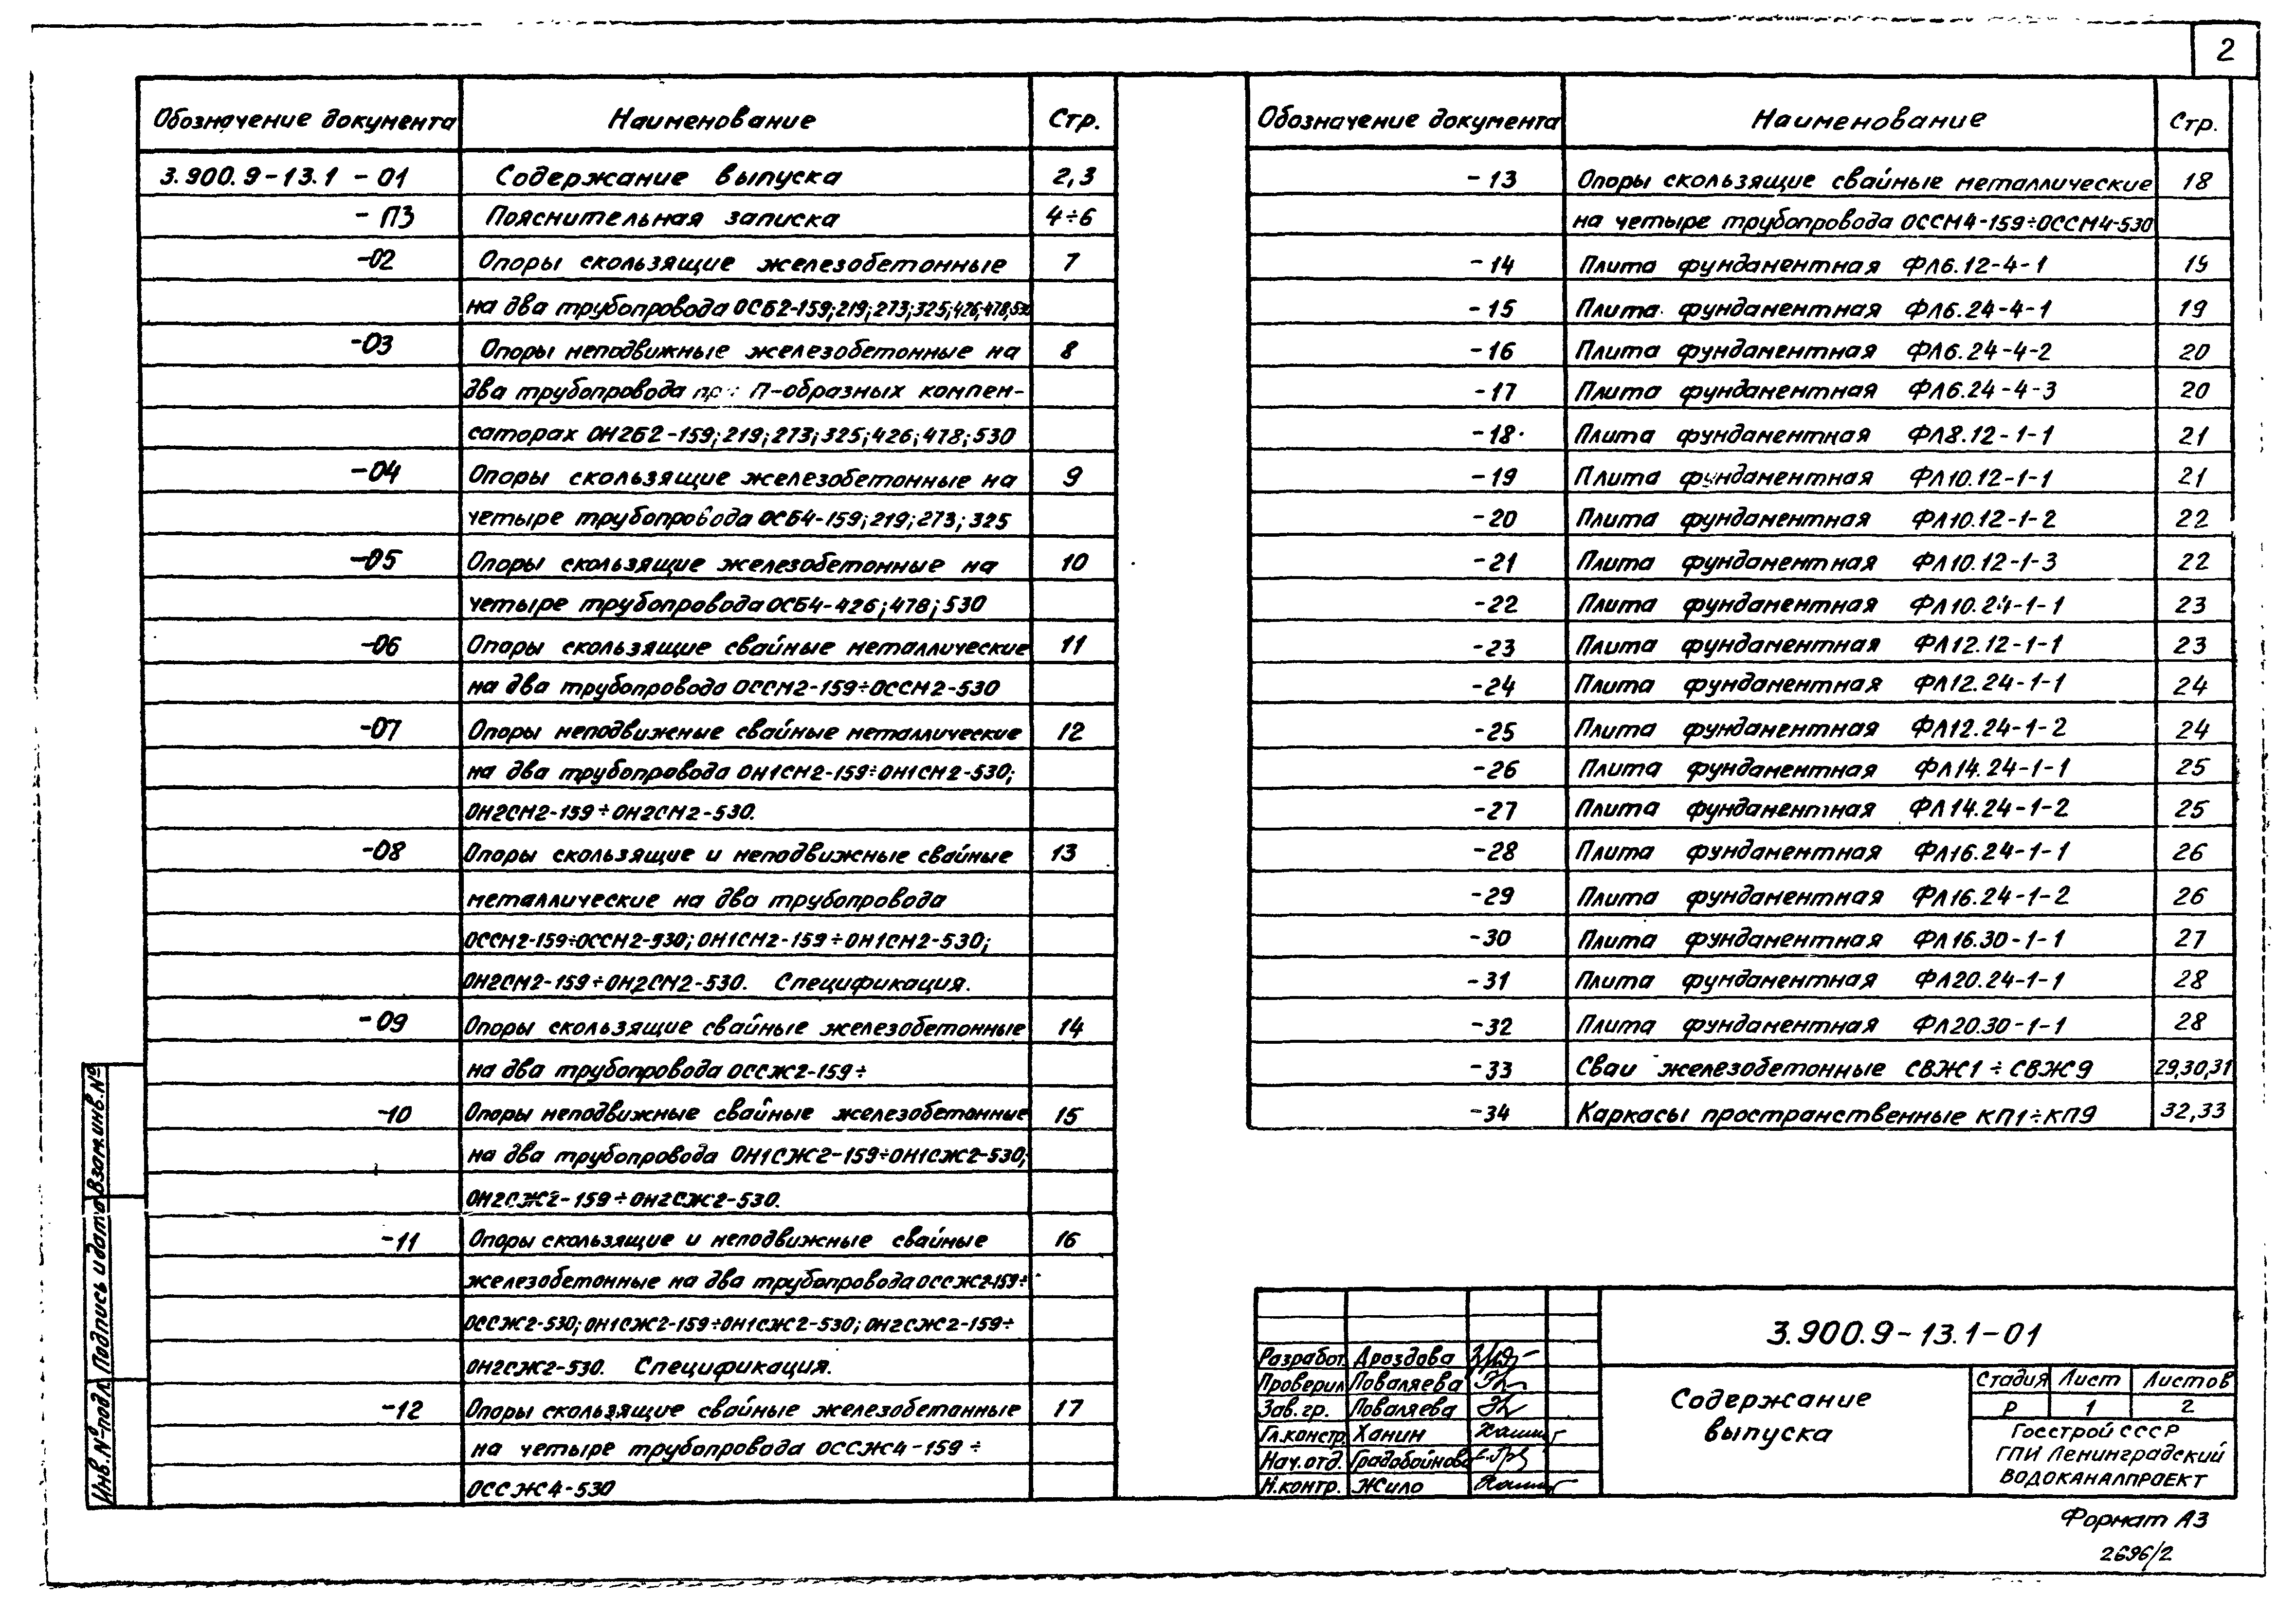 2
Обозначение документа Наименование Стр.
3.900.9-13.1-01 Содержание выпуска 2,3
-ПЗ Пояснительная записка 4÷6
-02 Опоры скользящие железобетонные 7
на два трубопровода ОСБ2-159;219;273;325;426;478;530
-03 Опоры неподвижные железобетонные на 8
два трубопровода при П-образных компен-
саторах ОН2Б2-159;219;273;325;426;478;530
-04 Опоры скользящие железобетонные на 9
четыре трубопровода ОСБ4-159;219;273;325
-05 Опоры скользящие железобетонные на 10
четыре трубопровода ОСБ4-426;478;530
-06 Опоры скользящие свайные металлические 11
на два трубопровода ОССМ2-159÷ОССМ2-530
-07 Опоры неподвижные свайные металлические 12
на два трубопровода ОН1СМ2-159÷ОН1СМ2-530;
ОН2СМ2-159÷ОН2СМ2-530.
-08 Опоры скользящие и неподвижные свайные 13
металлические на два трубопровода
ОССМ2-159÷ОССМ2-530; ОН1СМ2-159÷ОН1СМ2-530;
ОН2СМ2-159÷ОН2СМ2-530. Спецификация.
-09 Опоры скользящие свайные железобетонные 14
на два трубопровода ОССЖ2-159÷
-10 Опоры неподвижные свайные железобетонные 15
на два трубопровода ОН1СЖ2-159÷ОН1СЖ2-530;
ОН2СЖ2-159÷ОН2СЖ2-530.
-11 Опоры скользящие и неподвижные свайные 16
железобетонные на два трубопровода ОССЖ2-159÷
ОССЖ2-530; ОН1СЖ2-159÷ОН1СЖ2-530; ОН2СЖ2-159÷
ОН2СЖ2-530. Спецификация.
-12 Опоры скользящие свайные железобетонные 17
на четыре трубопровода ОССЖ4-159÷
ОССЖ4-530
Обозначение документа Наименование Стр.
-13 Опоры скользящие свайные металлические 18
на четыре трубопровода ОССМ4-159÷ОССМ4-530
-14 Плита фундаментная ФЛ6.12-4-1 19
-15 Плита фундаментная ФЛ6.24-4-1 19
-16 Плита фундаментная ФЛ6.24-4-2 20
-17 Плита фундаментная ФЛ6.24-4-3 20
-18 Плита фундаментная ФЛ8.12-1-1 21
-19 Плита фундаментная ФЛ10.12-1-1 21
-20 Плита фундаментная ФЛ10.12-1-2 22
-21 Плита фундаментная ФЛ10.12-1-3 22
-22 Плита фундаментная ФЛ10.24-1-1 23
-23 Плита фундаментная ФЛ12.12-1-1 23
-24 Плита фундаментная ФЛ12.24-1-1 24
-25 Плита фундаментная ФЛ12.24-1-2 24
-26 Плита фундаментная ФЛ14.24-1-1 25
-27 Плита фундаментная ФЛ14.24-1-2 25
-28 Плита фундаментная ФЛ16.24-1-1 26
-29 Плита фундаментная ФЛ16.24-1-2 26
-30 Плита фундаментная ФЛ16.30-1-1 27
-31 Плита фундаментная ФЛ20.24-1-1 28
-32 Плита фундаментная ФЛ20.30-1-1 28
-33 Сваи железобетонные СВЖ1÷СВЖ9 29,30,31
-34 Каркасы пространственные КП1÷КП9 32,33
Взам.инв.№
Подпись и дата
Инв.№ подл.
3.900.9-13.1-01
Разработ. Дроздова
Проверил Поваляева
Зав.гр. Поваляева
Гл.констр. Ханин
Нач.отд. Градобойнова
Н.контр. Жило
Содержание
выпуска
Стадия Лист Листов
Р 1 2
Госстрой СССР
ГПИ Ленинградский
Водоканалпроект
Формат А3
2696/2